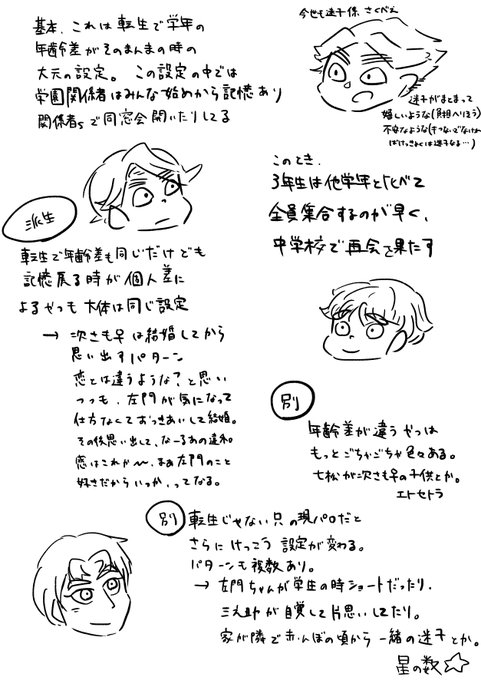 基本、これは転生で学年の
年齢差がそのまんまの時の
大元の設定。この設定の中では
学園関係者はみんな始めから記憶あり
関係者sで同窓会開いたりしてる
今世も迷子係、さくべえ
迷子がまとまって
嬉しいような(負担へりほう)
不安なような
このとき、
3年生は他学年と比べて
全員集合するのが早く、
中学校で再会を果たす
派生
転生で年齢差も同じだけども
記憶戻る時が個人差に
よるやつも大体は同じ設定
→ 次さも♀は結婚してから
思い出すパターン
恋とは違うような?と思い
つつも、左門が気になって
仕方なくておつきあいして結婚。
その後思い出して、なーるあの違和
感はこれか〜、まぁ左門のこと
好きだからいっか、ってなる。
別
年齢差が違うやつは
もっとごちゃごちゃ色々ある。
七松が次さも♀の子供とか。
エトセトラ
別
転生じゃない只の現パロだと
さらにけっこう設定が変わる。
パターンも複数あり。
→ 左門ちゃんが学生の時ショートだったり、
三之助が自覚して片思いしてたり。
家が隣で赤んぼの頃から一緒の迷子とか。
星の数☆